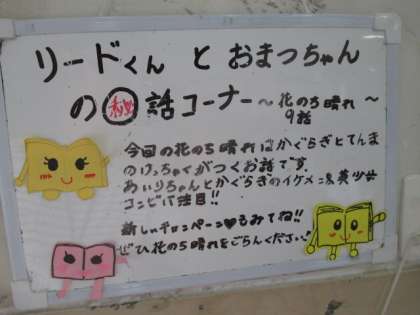 リードくん と おまつちゃん
の㊙話コーナー～花のち晴れ～
9話
今回の花のち晴れはかぐらぎとてんま
のけっちゃくがつくお話です。
あいりちゃんとかぐらぎのイケメン&美少女
コンビに注目!!
新しいキャンペーン♥もみてね!!
ぜひ花のち晴れをごらんください♪